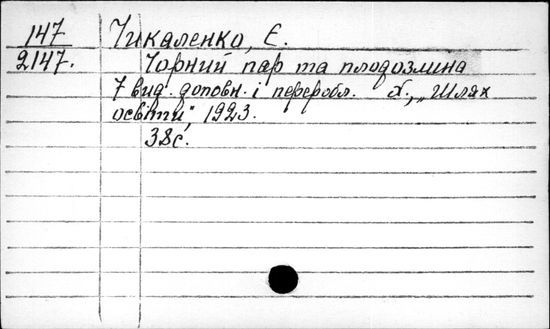 147 Чикаленко, Є.
2147. Чорний пар та плодозмина
7 вид. доповн. і переробл. Х., „Шлях
освіти," 1923.
38 с.